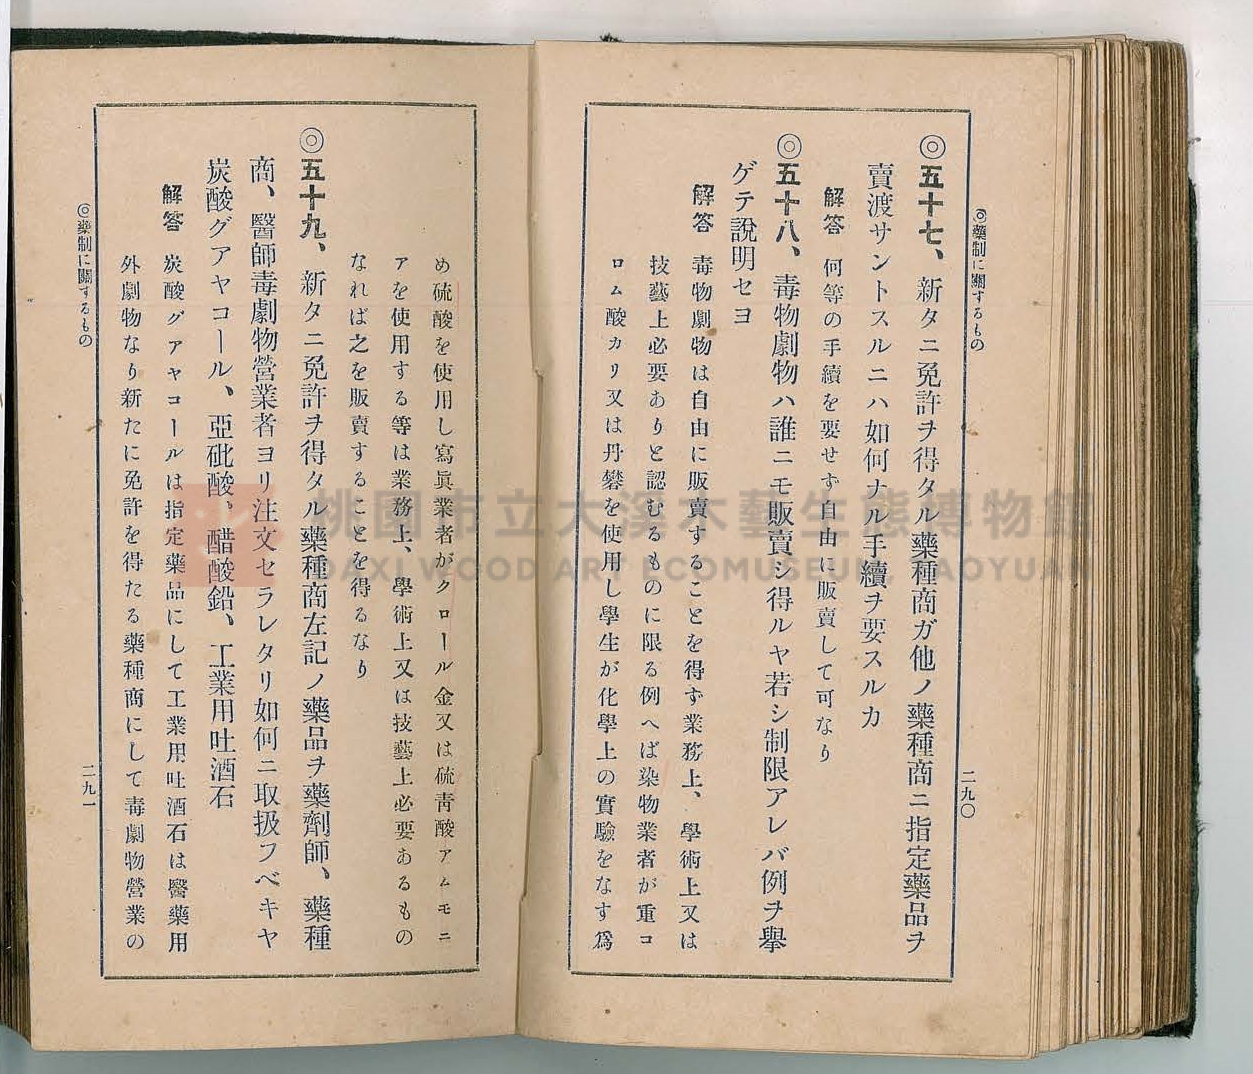 ◎藥制に關するもの
二九〇
◎五十七、新タニ免許ヲ得タル藥種商ガ他ノ藥種商ニ指定藥品ヲ
賣渡サントスルニハ如何ナル手續ヲ要スルカ
解答 何等の手續を要せず自由に販賣して可なり
◎五十八、毒物劇物ハ誰ニモ販賣シ得ルヤ若シ制限アレバ例ヲ擧
ゲテ說明セヨ
解答 毒物劇物は自由に販賣することを得ず業務上、學術上又は
技藝上必要ありと認むるものに限る例へば染物業者が重コ
ロム酸カリ又は丹礬を使用し學生が化學上の實驗をなす爲
め硫酸を使用し寫眞業者がクロール金又は硫靑酸アムモニ
アを使用する等は業務上、學術上又は技藝上必要あるもの
なれば之を販賣することを得るなり
◎五十九、新タニ免許ヲ得タル藥種商左記ノ藥品ヲ藥劑師、藥種
商、醫師毒劇物營業者ヨリ注文セラレタリ如何ニ取扱フベキヤ
炭酸グアヤコール、亞砒酸、醋酸鉛、工業用吐酒石
解答 炭酸グアヤコールは指定藥品にして工業用吐酒石は醫藥用
外劇物なり新たに免許を得たる藥種商にして毒劇物營業の
◎藥制に關するもの
二九一
桃園市立大溪木藝生態博物館
DAXI WOOD ART ECOMUSEUM, TAOYUAN